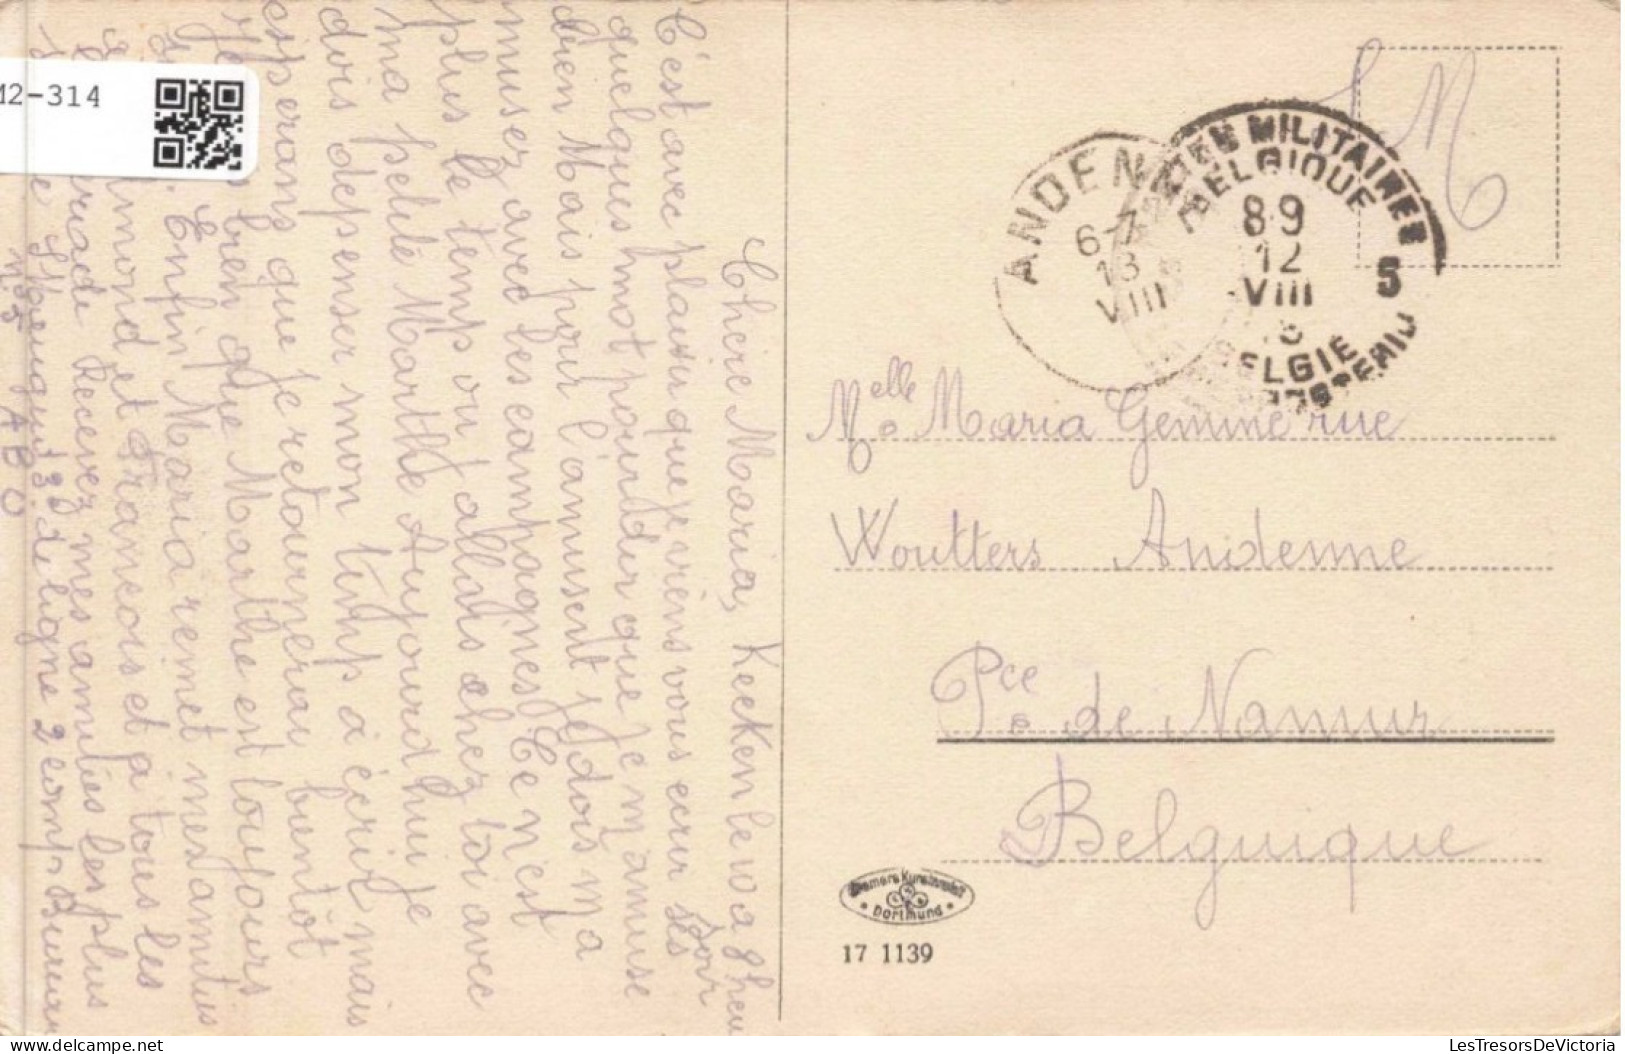 M2-314
Chère Maria, Keeken le 10 a 8 heu
soir
C'est avec plaisir que je viens vous ecrir ses
quelques mot pour dir que je m'amuse
bien Mais pour l'amusent je dois m'a
muser avec les campagnes Ce n'est
plus le temp ou j'allais chez toi avec
ma petite Marthe Aujourd'hui je
dois depenser mon temp à écrir mais
esperans que je retournerai bientôt
bien que Marthe est toujours
Enfin Maria remet mes amitiés
mond et François et a tous les
Recevez mes amitiés les plus
13 de ligne 2 comp. Bureau
n° 5 A B O
S M
ANDENNE
6-7
13
VIII
POSTES MILITAIRES
BELGIQUE
89
12
VIII
5
BELGIE
Melle Maria Gemine rue
Woutters Andenne
Pce de Namur
Belguique
Dortmund
17 1139
LesTresorsDeVictoria.com
LesTresorsDeVictoria